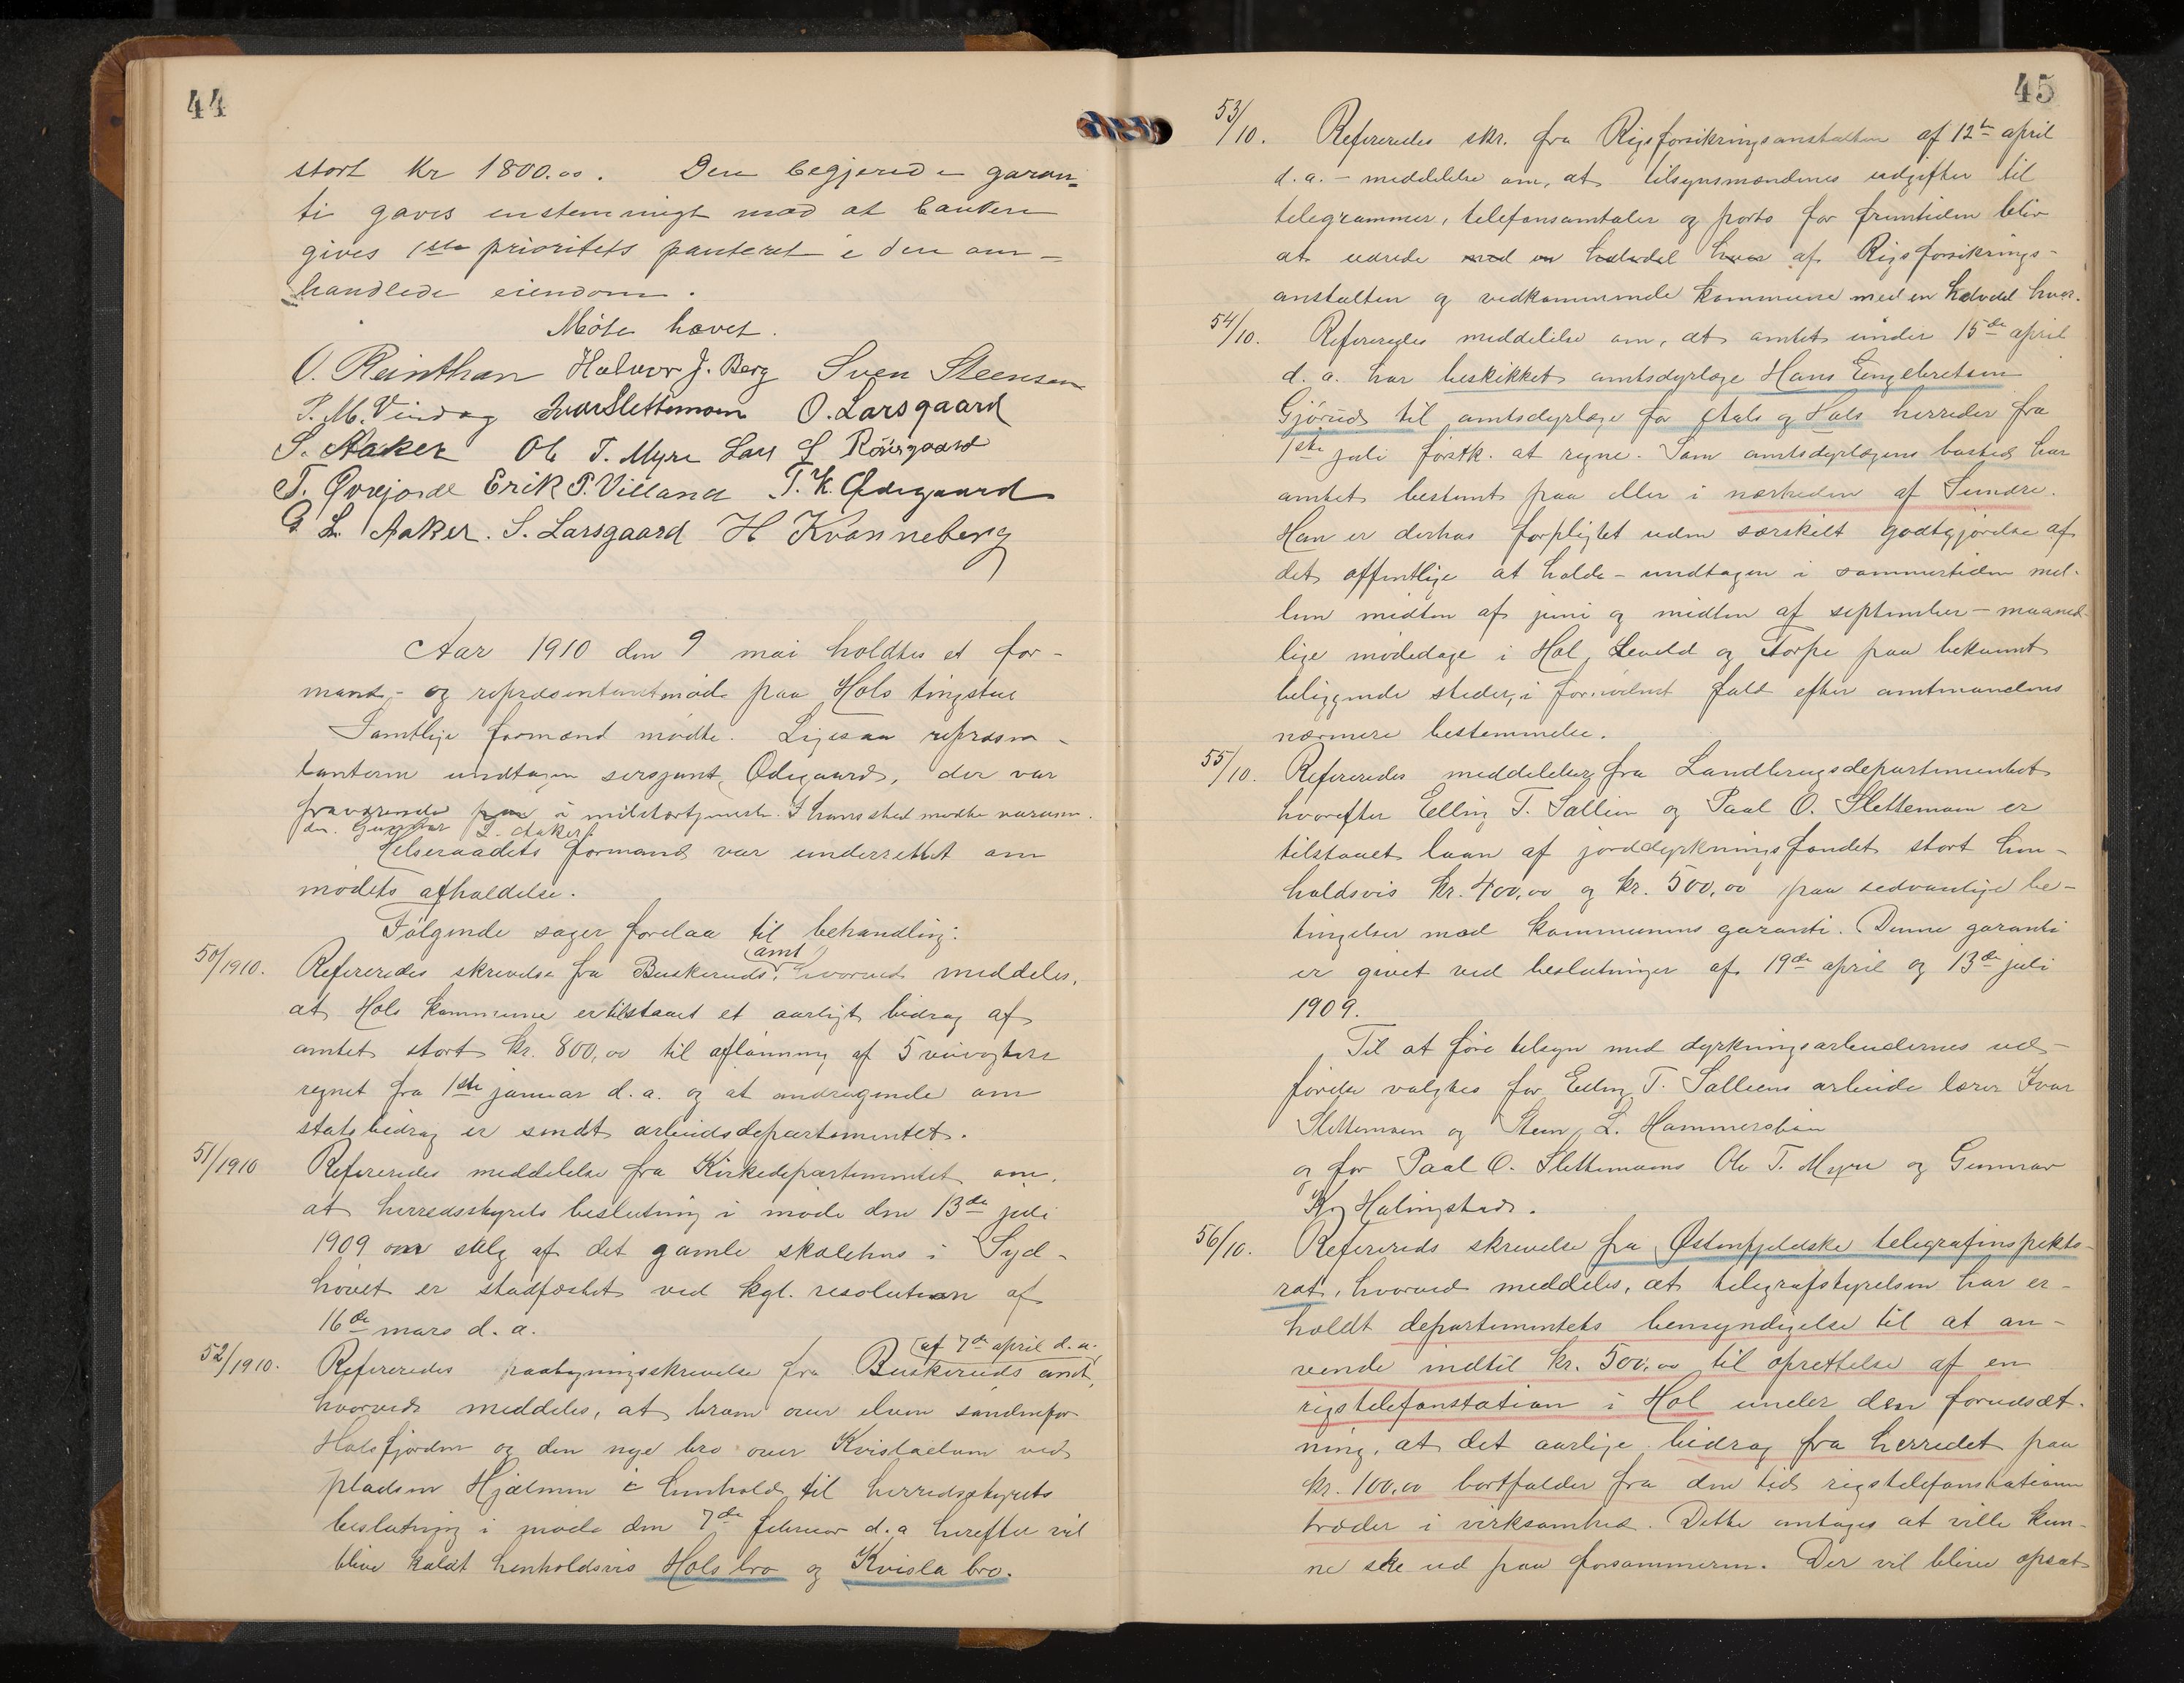 44
stort Kr 1800.00. Den begjærede garan-
ti gaves enstemmigt mod at banken
gives 1ste prioritets panteret i den om-
handlede eiendom.
Møte hævet.
O. Reinthon Halvor J. Berg Sven Steensen
P. M. Vindeg Ivar Slettemoen O. Larsgaard
S. Aaker Ole T. Myre Lars S Röisgaard
T. Qvejorde Erik P. Villand T. K. Ødegaard
G L. Aaker. S. Larsgaard H Kvanneberg
Aar 1910 den 9 mai holdtes et for-
mands- og repræsentantmøde paa Hols tingstue
Samtlige formænd mødte. Ligesaa repræsen-
tanterne undtagen sersjant Ødegaard, der var
fraværende paa i militærtjeneste. I hans sted mødte varaman.
den Gunnar L. Aaker.
Helseraadets formand var underrettet om
mødets afholdelse.
Følgende sager forelaa til behandling:
50/1910. Refereredes skrivelse fra Buskeruds amt hvorved meddeles,
at Hols kommune er tilstaaet et aarligt bidrag af
amtet stort kr. 800,00 til aflønning af 5 veivogtere
regnet fra 1ste januar d.a. og at andragende om
statsbidrag er sendt arbeidsdepartementet.
51/1910 Refereredes meddelelse fra Kirkedepartementet om,
at herredsstyrets beslutning i møde den 13de juli
1909 om salg af det gamle skolehus i Syd-
hovet er stadfæstet ved kgl. resolution af
16de mars d.a.
52/1910. Refereredes paategningsskrivelse fra Buskeruds amt af 7de april d.a.,
hvorved meddeles, at broen over elven søndenfor
Holsfjorden og den nye bro over Kvislaelven ved
pladsen Hjælmen i henhold til herredsstyrets
beslutning i møde den 7de februar d.a herefter vil
blive kaldt henholdsvis Hols bro og Kvisla bro.
45
53/10. Refereredes skr. fra Rigsforsikringsanstalten af 12te april
d.a. - meddelelse om, at tilsynsmændenes udgifter til
telegrammer, telefonsamtaler og porto for fremtiden bliv
at udrede med en halvdel hver af Rigsforsikrings-
anstalten og vedkommende kommune med en halvdel hver.
54/10. Refereredes meddelelse om, at amtet under 15de april
d.a. har beskikket amtsdyrlæge Hans Engebretsen
Gjørud til amtsdyrlæge for Aals og Hols herreder fra
1ste juli førstk. at regne. Som amtsdyrlægens bosted har
amtet bestemt paa eller i nærheden af Sundre.
Han er derhos forpligtet uden særskilt godtgjørelse af
det offentlige at holde - undtagen i sommertiden mel-
lem midten af juni og midten af september - maaned-
lige mødedage i Hol, Leveld og Torpe paa bekvemt
beliggende steder, i fornødent fald efter amtmandens
nærmere bestemmelse.
55/10. Refereredes meddelelser fra Landbrugsdepartementet
hvorefter Elling T. Sallien og Paal O. Slettemoen er
tilstaaet laan af jorddyrkningsfondet stort hen-
holdsvis kr. 400,00 og kr. 500,00 paa sedvanlige be-
tingelser mod kommunens garanti. Denne garanti
er givet ved beslutninger af 19de april og 13de juli
1909.
Til at føre tilsyn med dyrkningsarbeidernes ud-
førelse valgtes for Elling T. Salliens arbeide lærer Ivar
Slettemoen og Steen L. Hammersbøen
og for Paal O. Slettemoens Ole T. Myre og Gunnar
K. Holingstad.
56/10. Refereredes skrivelse fra Østenfjeldske telegrafinspekto-
rat, hvorved meddeles, at telegrafstyrelsen har er-
holdt departementets bemyndigelse til at an-
vende indtil kr. 500,00 til oprettelse af en
rigstelefonstation i Hol under den forudsæt-
ning, at det aarlige bidrag fra herredet paa
kr. 100,00 bortfalder fra den tid rigstelefonstationen
træder i virksomhed. Dette antages at ville kun-
ne ske ud paa forsommeren. Der vil blive opsat